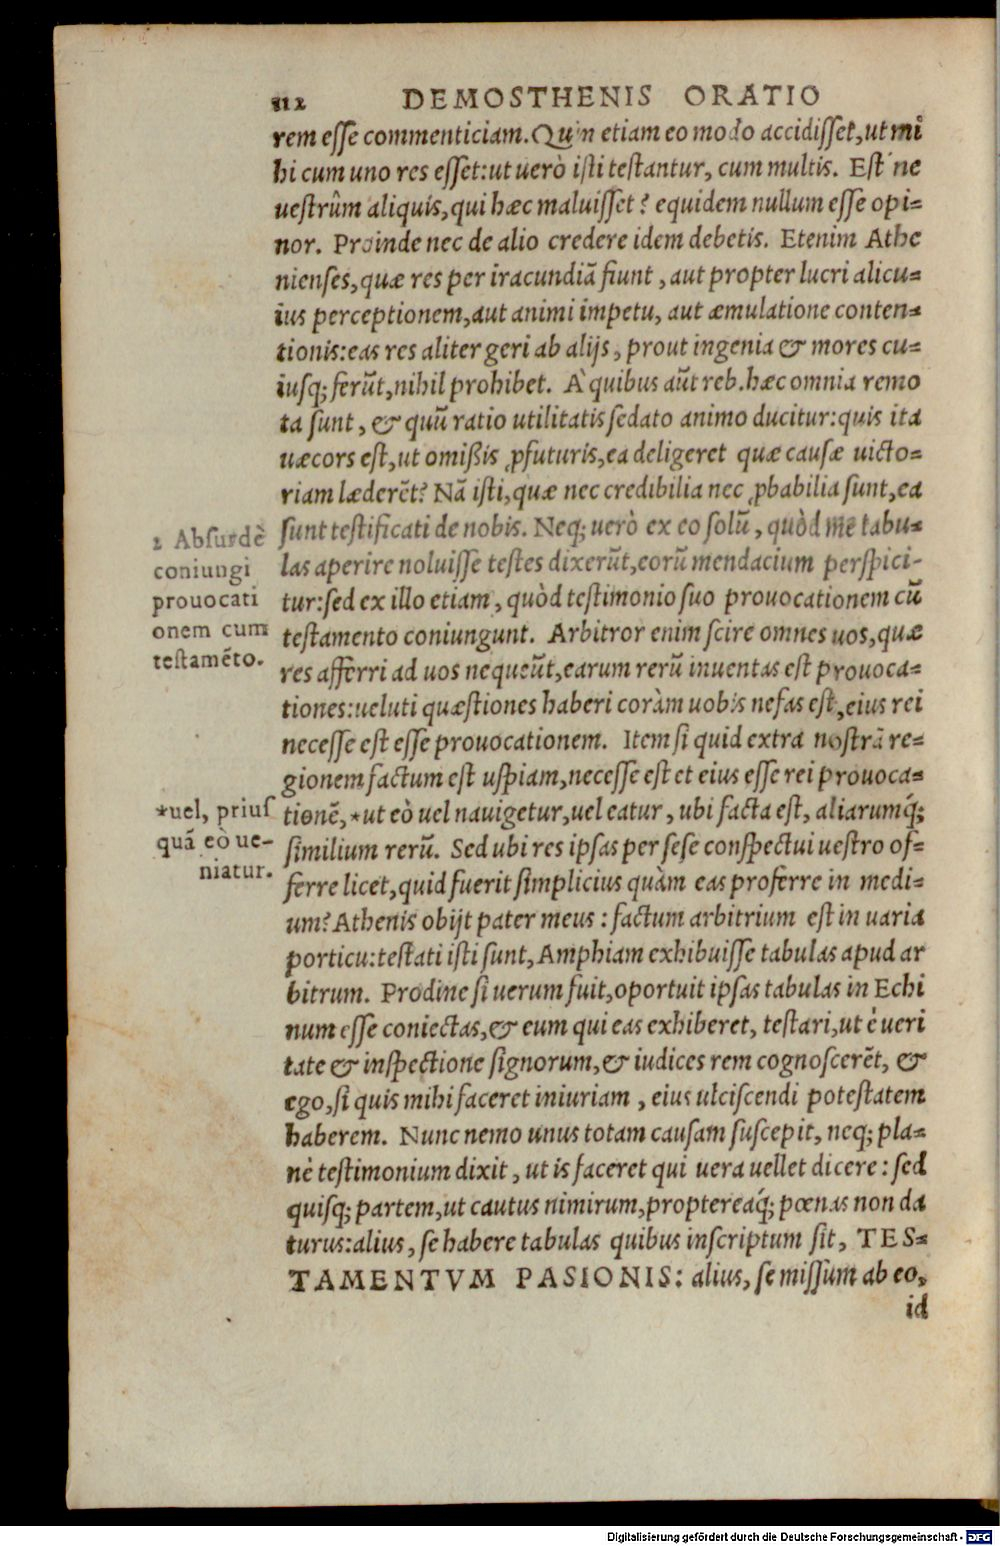 112 DEMOSTHENIS ORATIO
rem esse commenticiam. Quin etiam eo modo accidisset, ut mi
hi cum uno res esset: ut uerò isti testantur, cum multis. Est ne
uestrûm aliquis, qui hæc maluisset? equidem nullum esse opi=
nor. Proinde nec de alio credere idem debetis. Etenim Athe
nienses, quæ res per iracundiã fiunt, aut propter lucri alicu=
ius perceptionem, aut animi impetu, aut æmulatione conten=
tionis: eas res aliter geri ab alijs, prout ingenia & mores cu=
iusq; ferũt, nihil prohibet. À quibus aũt reb. hæc omnia remo
ta sunt, & quũ ratio utilitatis sedato animo ducitur: quis ita
uæcors est, ut omißis ꝓfuturis, ea deligeret quæ causæ uicto=
riam læderẽt? Nã isti, quæ nec credibilia nec ꝓbabilia sunt, ea
sunt testificati de nobis. Neq; uerò ex eo solũ, quòd me tabu=
las aperire noluisse testes dixerũt, eorũ mendacium perspici-
tur: sed ex illo etiam, quòd testimonio suo prouocationem cũ
testamento coniungunt. Arbitror enim scire omnes uos, quæ
res afferri ad uos nequeũt, earum rerũ inuentas est prouoca=
tiones: ueluti quæstiones haberi coràm uobis nefas est, eius rei
necesse est esse prouocationem. Item si quid extra nostrã re=
gionem factum est uspiam, necesse est et eius esse rei prouoca=
tionẽ, *ut eò uel nauigetur, uel eatur, ubi facta est, aliarumq́;
similium rerũ. Sed ubi res ipsas per sese conspectui uestro of=
ferre licet, quid fuerit simplicius quàm eas proferre in medi=
um? Athenis obijt pater meus: factum arbitrium est in uaria
porticu: testati isti sunt, Amphiam exhibuisse tabulas apud ar
bitrum. Prodine si uerum fuit, oportuit ipsas tabulas in Echi
num esse coniectas, & eum qui eas exhiberet, testari, ut è ueri
tate & inspectione signorum, & iudices rem cognoscerẽt, &
ego, si quis mihi faceret iniuriam, eius ulciscendi potestatem
haberem. Nunc nemo unus totam causam suscepit, neq; pla=
nè testimonium dixit, ut is faceret qui uera uellet dicere: sed
quisq; partem, ut cautus nimirum, proptereaq́; pœnas non da
turus: alius, se habere tabulas quibus inscriptum sit, TES=
TAMENTVM PASIONIS: alius, se missum ab eo,
id
2 Absurdè
coniungi
prouocati
onem cum
testamẽto.
*uel, prius
quã eò ue-
niatur.
Digitalisierung gefördert durch die Deutsche Forschungsgemeinschaft - DFG